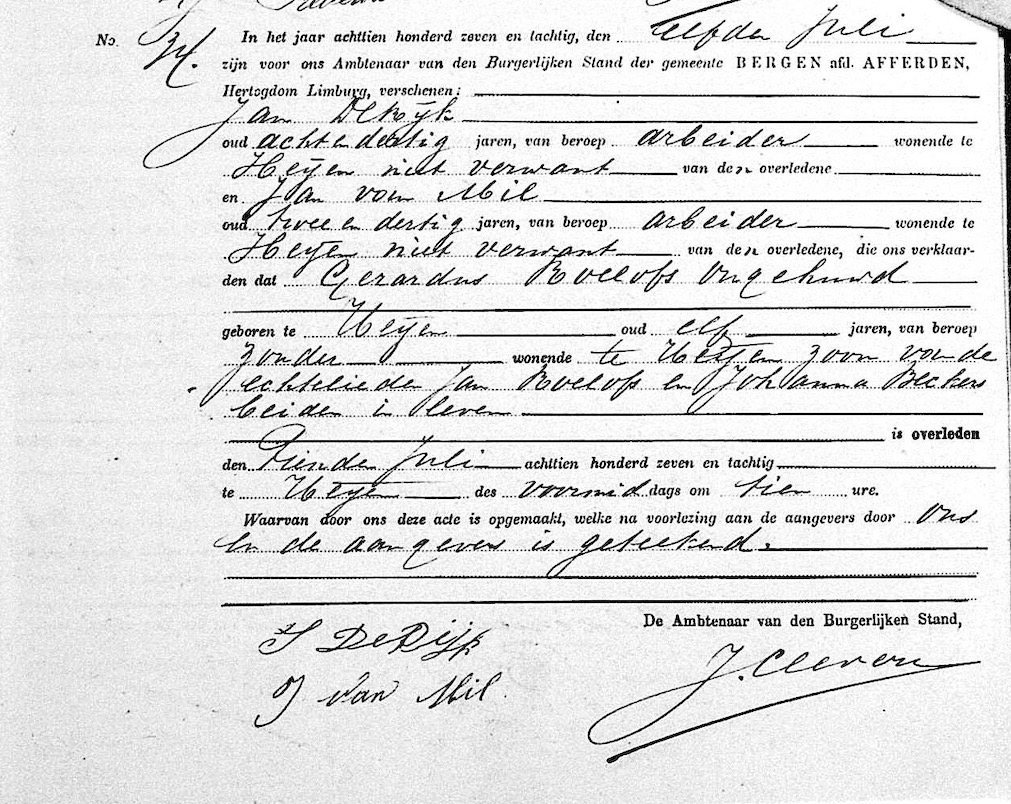 No. 34. In het jaar achttien honderd zeven en tachtig, den elfden Juli
zijn voor ons Ambtenaar van den Burgerlijken Stand der gemeente BERGEN afd. AFFERDEN,
Hertogdom Limburg, verschenen:
Jan DeRijk
oud acht en dertig jaren, van beroep arbeider wonende te
Heijen niet verwant van den overledene
en Jan van Mil
oud twee en dertig jaren, van beroep arbeider wonende te
Heijen niet verwant van den overledene, die ons verklaar-
den dat Gerardus Roelofs ongehuwd
geboren te Heijen oud elf jaren, van beroep
zonder wonende te Heijen zoon van de
echtelieden Jan Roelofs en Johanna Beckers
beiden in leven
is overleden
den tienden Juli achttien honderd zeven en tachtig
te Heijen des voormiddags om tien ure.
Waarvan door ons deze acte is opgemaakt, welke na voorlezing aan de aangevers door ons
en de aangevers is geteekend.
De Ambtenaar van den Burgerlijken Stand,
J DeRijk
J. Cleven
J van Mil